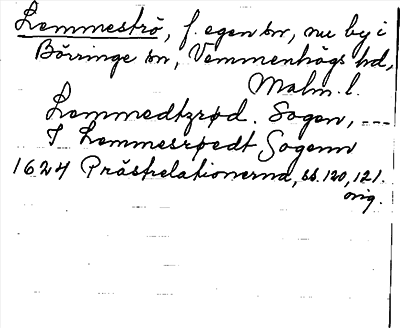 Lemmeströ, f. egen sn, nu by i
Börringe sn, Vemmenhögs hd,
Malm. l.
Lemmedtzrød. Sogen, ---
I Lemmesrøedt Sogenn
1624 Prästrelationerna, ss. 120, 121.
orig.